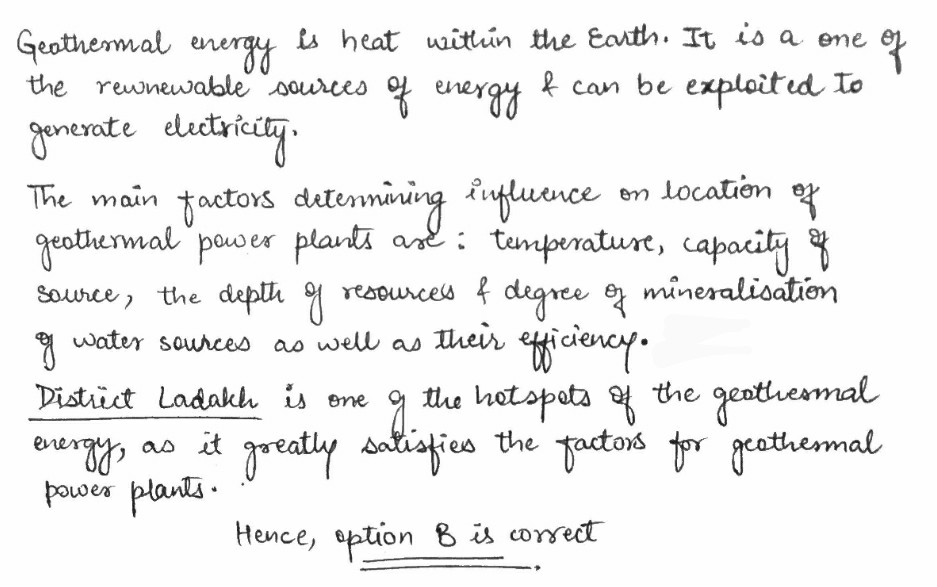 Geothermal energy is heat within the Earth. It is a one of
the rewnewable sources of energy & can be exploited to
generate electricity.
The main factors determining influence on location of
geothermal power plants are : temperature, capacity of
source, the depth of resources & degree of mineralisation
of water sources as well as their efficiency.
District Ladakh is one of the hotspots of the geothermal
energy, as it greatly satisfies the factors for geothermal
power plants.
Hence, option B is correct.